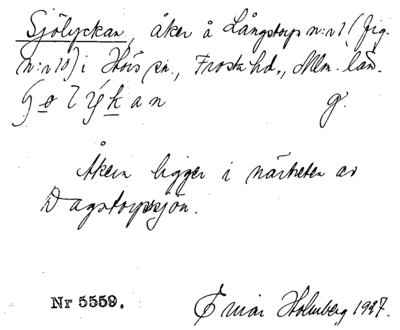 Sjölyckan, åker å Långstorp n:r 1 (fig.
n:r 10) i Hörs sn., Frosta hd., Mlm. län.
åker ligger i närheten av
Dagstorpssjön.
Nr 5559. Einar Holmberg 1927.